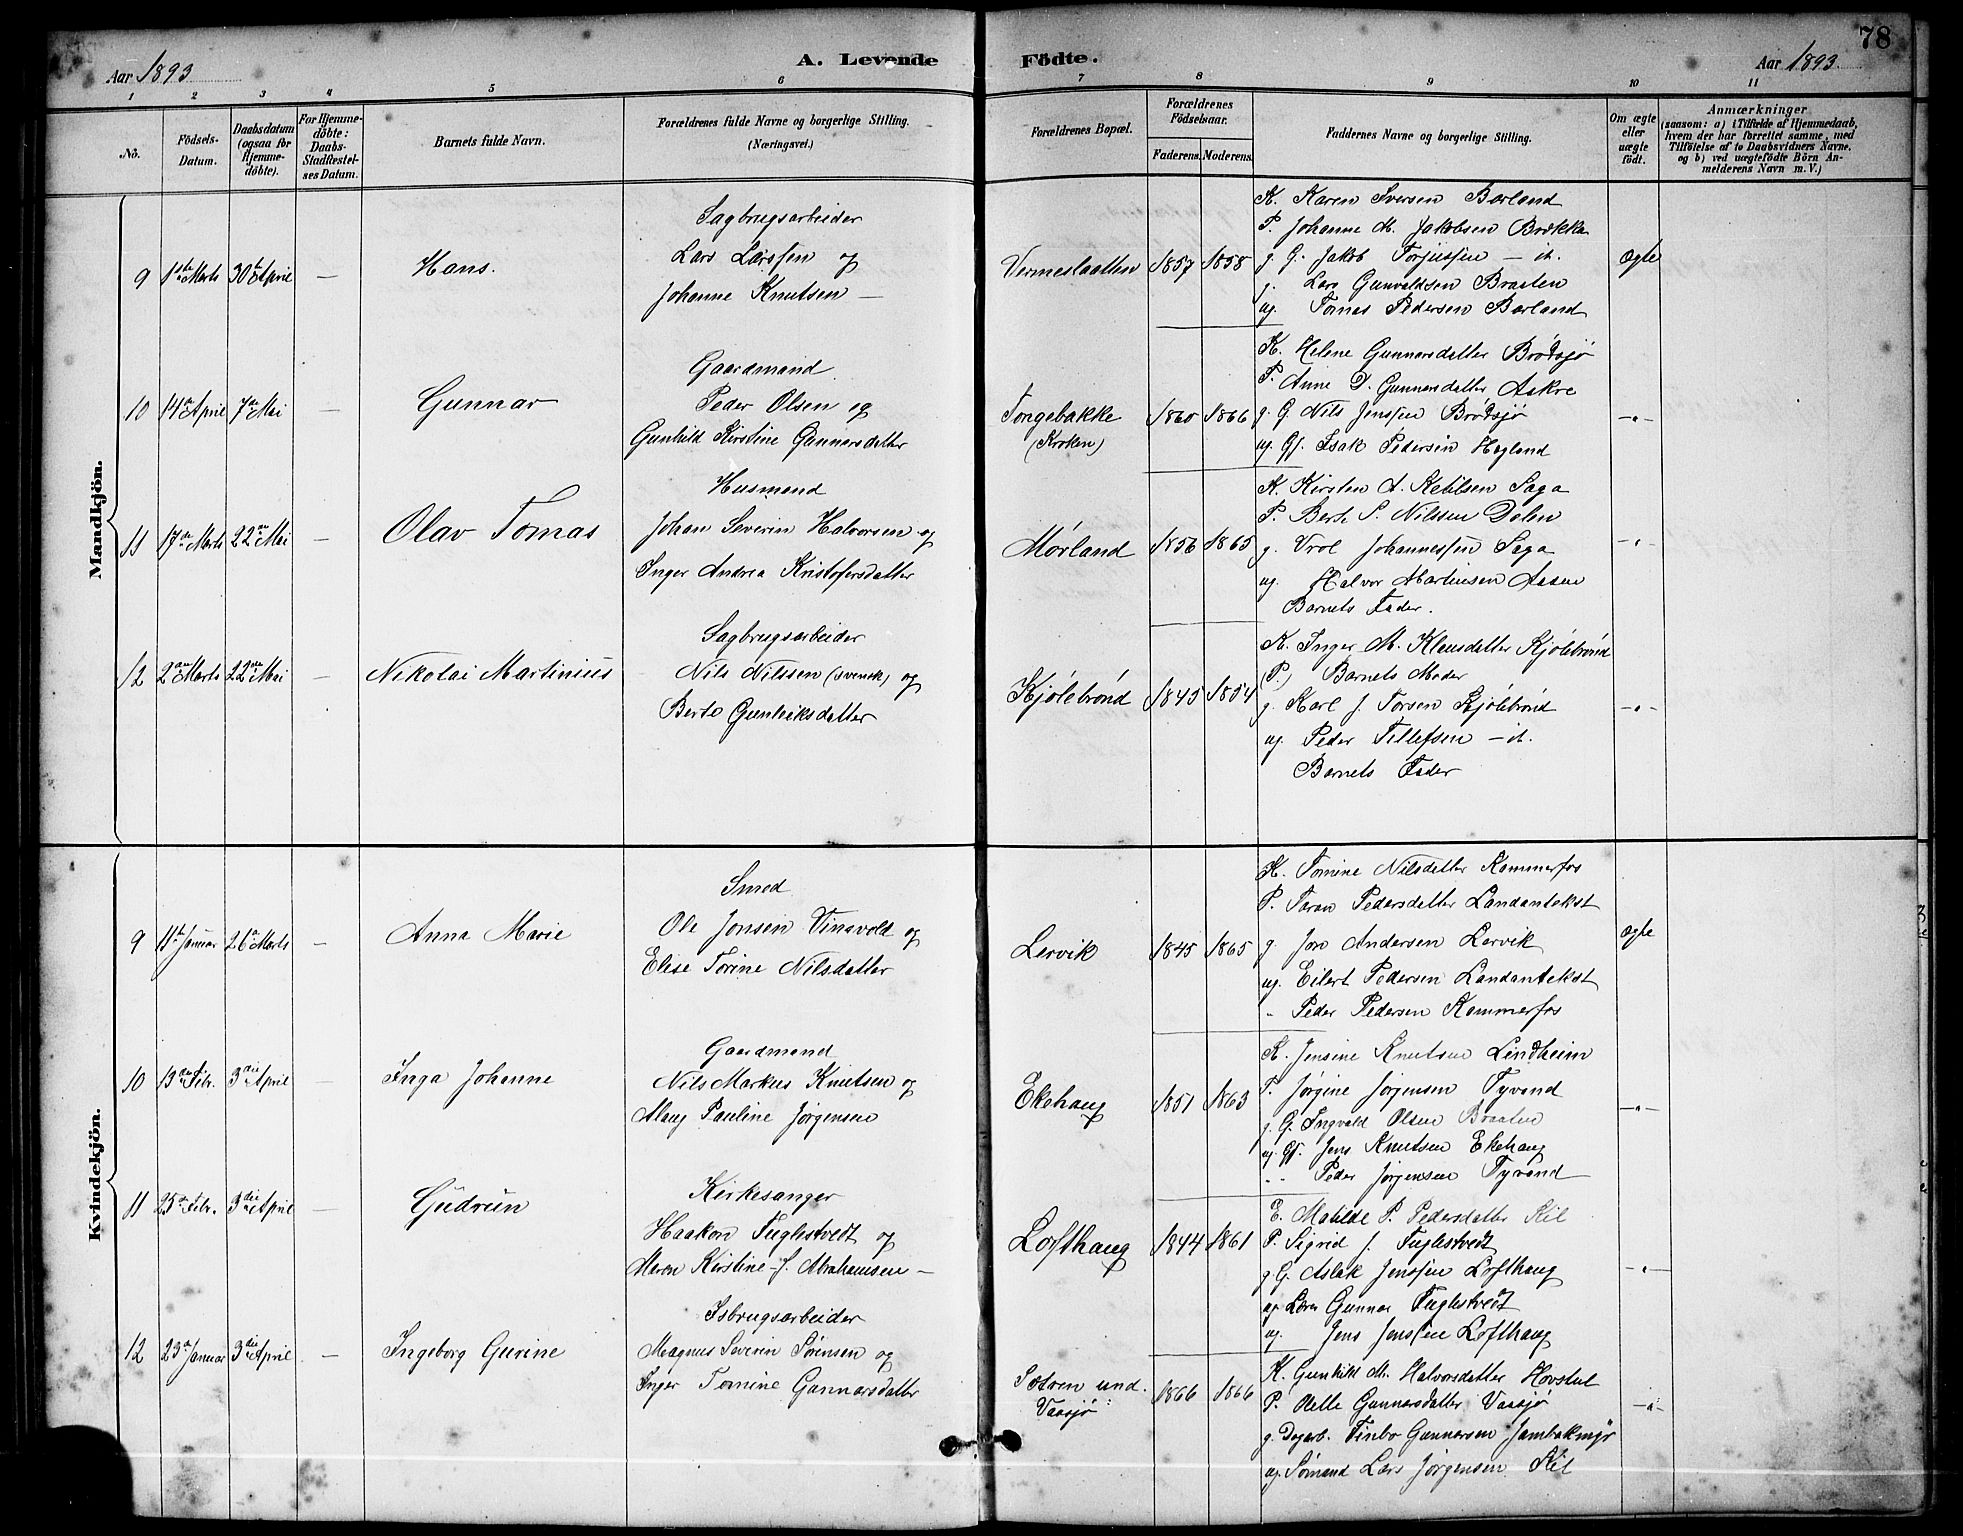 78
Aar 1893
A. Levende Födte.
Aar 1893.
1 2 3 4 5 6 7 8 9 10 11
No.
Födsels-Datum.
Daabsdatum (ogsaa for Hjemme-döbte).
For Hjemme-döbte: Daabs-Stadfæstel-ses Datum.
Barnets fulde Navn.
Forældrenes fulde Navne og borgerlige Stilling.
(Næringsvei.)
Forældrenes Bopæl.
Forældrenes Födselsaar.
Faderens. Moderens.
Faddernes Navne og borgerlige Stilling.
Om ægte eller uægte födt.
Anmærkninger
(saasom: a) i Tilfælde af Hjemmedaab,
hvem der har forrettet samme, med
Tilföielse af to Daabsvidners Navne,
og b) ved uægtefödte Börn An-
melderens Navn m. V.)
Mandkjön.
9 1ste Marts 30te April — Hans.
Sagbrugsarbeider
Lars Larssen og
Johanne Knutsen —
Vermeslaatten 1857 1858
K. Karen Iversen Barland
P. Johanne M. Jakobsen Brække
g. G. Jakob Torjussen — it.
g. Lars Gunvaldsen Braaten
ug. Tomas Pedersen Barland
Ægte
10 14de April 7de Mai — Gunnar
Gaardmand
Peder Olsen og
Gunhild Kirstine Gunnarsdatter
Tongebakke
(Kroken)
1860 1866
K. Helene Gunnarsdatter Brødsjø
P. Anne D. Gunnarsdatter Aakre
g. G. Nils Jenssen Brødsjø
ug. Gf. Isak Pedersen Hegland
-"-
11 17de Marts 22de Mai — Olav Tomas
Husmand
Johan Severin Halvorsen og
Inger Andrea Kristofersdatter
Mørland 1856 1865
K. Kirsten A. Ketilsen Saga
P. Berte S. Nilssen Dalen
g. Vrol Johannessen Saga
ug. Halvor Martinsen Aasen
Barnets Fader.
-"-
12 2den Marts 22de Mai — Nikolai Martinius
Sagbrugsarbeider
Nils Nilssen (svensk) og
Berte Gunleiksdatter
Kjølebrønd 1845 1854
K. Inger M. Klausdatter Kjølebrønd
(P.) Barnets Moder
g. Karl J. Torsen Kjølebrønd
ug. Peder Tellefsen — it.
Barnets Fader
-"-
Kvindekjön.
9 11te Januar 26de Marts — Anna Marie
Smed
Ole Jonsen Vinsvold og
Elise Torine Nilsdatter
Lervik 1845 1865
K. Tomine Nilsdatter Kammerfos
P. Taran Pedersdatter Landantekst
g. Jon Andersen Lervik
ug. Eilert Pedersen Landantekst
" Peder Pedersen Kammerfos
Ægte
10 13de Febr. 3die April — Inga Johanne
Gaardmand
Nils Markus Knutsen og
Alaug Pauline Jørgensen
Ekehaug 1851 1863
K. Jensine Knutsen Lindheim
P. Jørgine Jørgensen Tyvand
g. G. Ingvald Olsen Braaten
ug. Gf. Jens Knutsen Ekehaug
" " Peder Jørgensen Tyvand
-"-
11 25de Febr. 3die April — Gudrun
Kirkesanger
Haakon Fuglestvedt og
Maren Kirstine J. Abrahamsen —
Lofthaug 1844 1861
E. Matilde P. Pedersdatter Kil
P. Sigrid J. Fuglestvedt
g. G. Aslak Jenssen Lofthaug
ug. Lærer Gunnar Fuglestvedt
ug. Jens Jenssen Lofthaug
-"-
12 23de Januar 3die April — Ingeborg Gurine
Isbrugsarbeider
Magnus Severin Sørensen og
Inger Tomine Gunnarsdatter
Sætren und.
Vassjø
1866 1866
K. Gunhild M. Halvorsdatter Hovstul
P. Helle Gunnarsdatter Vassjø
g. Dagarb. Finbo Gunnarsen
ug. Sømand Lars Jørgensen Kil
-"-